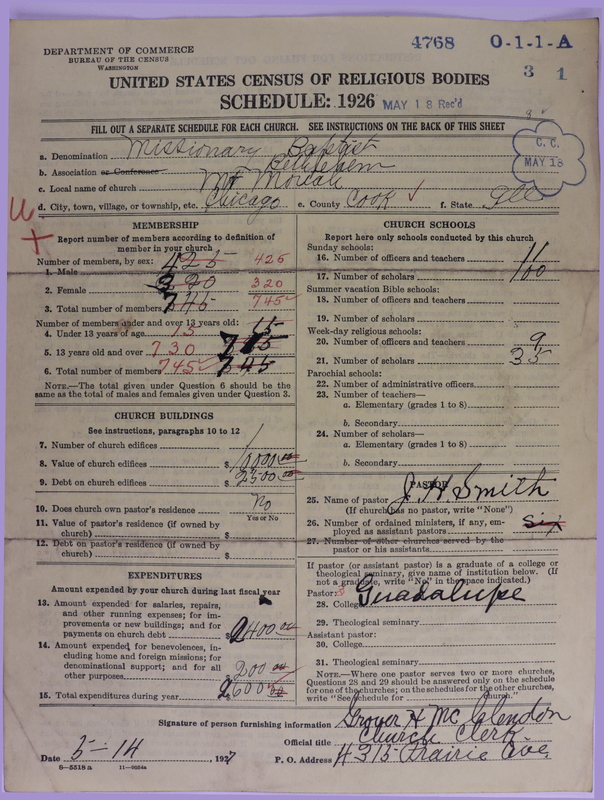 DEPARTMENT OF COMMERCE
BUREAU OF THE CENSUS
WASHINGTON
4768 O-1-1-A
3 1
UNITED STATES CENSUS OF RELIGIOUS BODIES
SCHEDULE: 1926 MAY 18 Rec'd
FILL OUT A SEPARATE SCHEDULE FOR EACH CHURCH. SEE INSTRUCTIONS ON THE BACK OF THIS SHEET
C. C.
MAY 18
a. Denomination Missionary Baptist
b. Association or Conference Bethlehem
c. Local name of church Mt Moriah
d. City, town, village, or township, etc. Chicago e. County Cook f. State Ill
MEMBERSHIP
Report number of members according to definition of
member in your church
Number of members, by sex:
1. Male 425 425
2. Female 320 320
3. Total number of members 745 745
Number of members under and over 13 years old:
4. Under 13 years of age 15 15
5. 13 years old and over 730
6. Total number of members 745 745
NOTE.—The total given under Question 6 should be the
same as the total of males and females given under Question 3.
CHURCH BUILDINGS
See instructions, paragraphs 10 to 12
7. Number of church edifices 1
8. Value of church edifices $ 10000 00
9. Debt on church edifices $ 2500 00
10. Does church own pastor's residence No
Yes or No
11. Value of pastor's residence (if owned by
church) $
12. Debt on pastor's residence (if owned by
church) $
EXPENDITURES
Amount expended by your church during last fiscal year
13. Amount expended for salaries, repairs,
and other running expenses; for im-
provements or new buildings; and for
payments on church debt $ 2400 00
14. Amount expended for benevolences, in-
cluding home and foreign missions; for
denominational support; and for all
other purposes 200 00
15. Total expenditures during year $ 2600 00
CHURCH SCHOOLS
Report here only schools conducted by this church
Sunday schools:
16. Number of officers and teachers 11
17. Number of scholars 100
Summer vacation Bible schools:
18. Number of officers and teachers
19. Number of scholars
Week-day religious schools:
20. Number of officers and teachers 9
21. Number of scholars 35
Parochial schools:
22. Number of administrative officers
23. Number of teachers—
a. Elementary (grades 1 to 8)
b. Secondary
24. Number of scholars—
a. Elementary (grades 1 to 8)
b. Secondary
PASTOR
25. Name of pastor J. H Smith
(If church has no pastor, write "None")
26. Number of ordained ministers, if any, em-
ployed as assistant pastors Six
27. Number of other churches served by the
pastor or his assistants
If pastor (or assistant pastor) is a graduate of a college or
theological seminary, give name of institution below. (If
not a graduate, write "No" in the space indicated.)
Pastor:
28. College Guadalupe
29. Theological seminary
Assistant pastor:
30. College
31. Theological seminary
NOTE.—Where one pastor serves two or more churches,
Questions 28 and 29 should be answered only on the schedule
for one of the churches; on the schedules for the other churches,
write "See schedule for church."
Signature of person furnishing information Grover H McClendon
Official title Church Clerk
Date 5-14, 1927 P. O. Address 4315 Prairie Ave.
8—5518 a 11—9034a